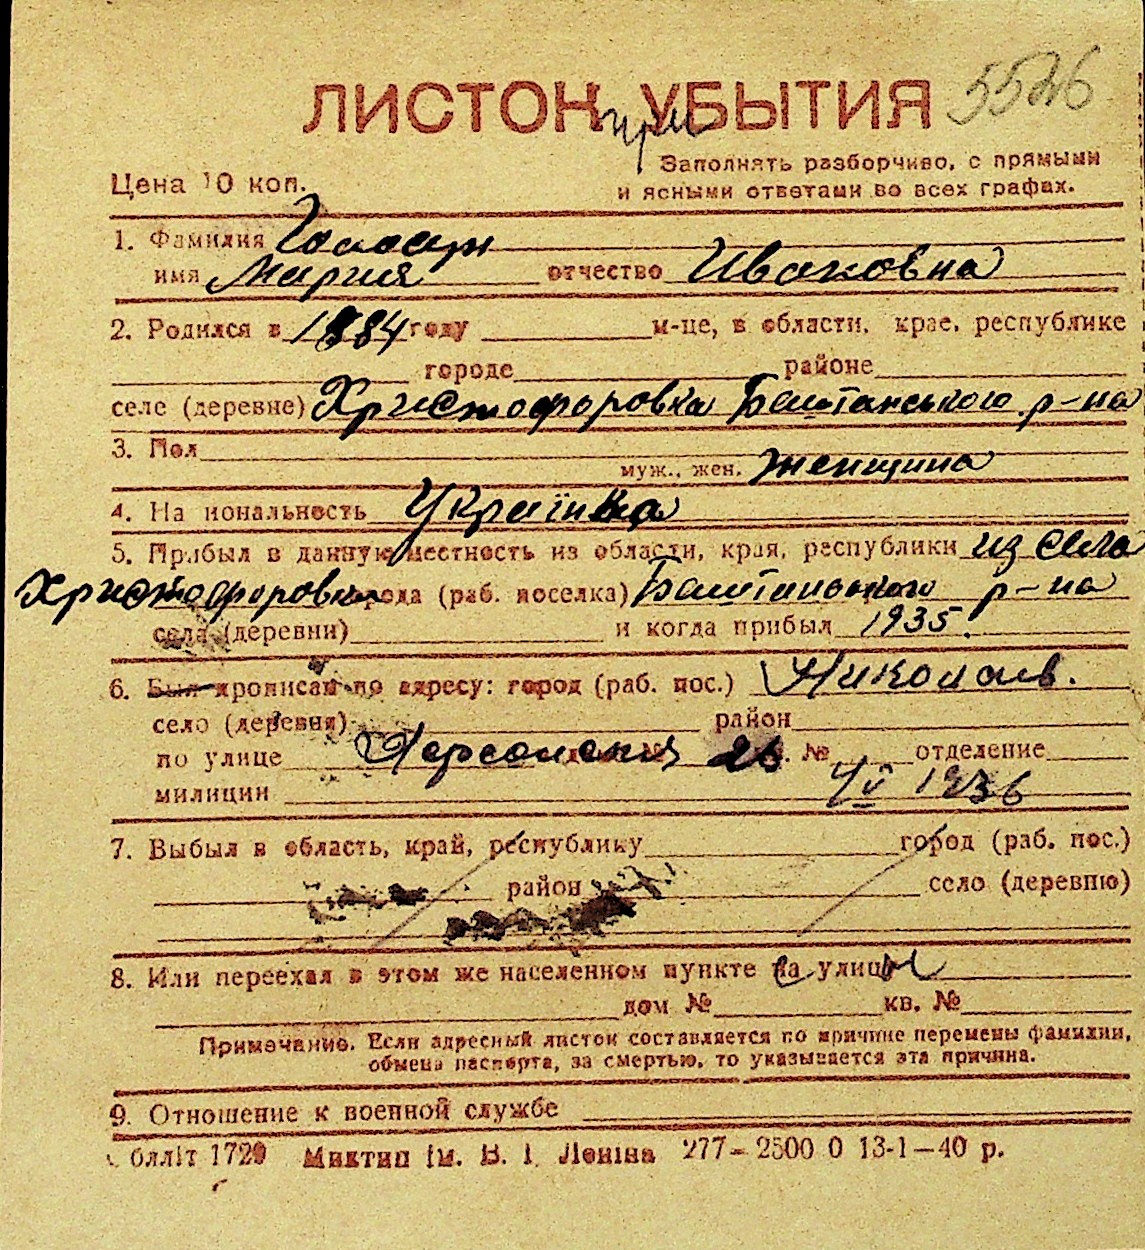 ЛИСТОК при УБЫТИЯ 5526
Заполнять разборчиво, с прямыми
Цена 10 коп.
и ясными ответами во всех графах.
1. Фамилия
имя Мария отчество Ивановна
2. Родился в 1884 году м-це, в области, крае, республике
городе районе
селе (деревне) Христофоровка Баштанського р-на
3. Пол
муж., жен. женщина
4. На иональность Українка
5. Прибыл в данную местность из области, края, республики из села
Христофоровки города (раб. поселка) Баштанського р-на
села (деревни) и когда прибыл 1935.
6. Был прописан по адресу: город (раб. пос.) Николаев.
село (деревня) район
по улице Херсонская 26 № отделение
милиции 4/V 1936
7. Выбыл в область, край, республику город (раб. пос.)
район село (деревню)
8. Или переехал в этом же населенном пункте са улицы
дом № кв. №
Примечание. Если адресный листок составляется по причине перемены фамилии,
обмена паспорта, за смертью, то указывается эта причина.
9. Отношение к военной службе
бліт 1729 Миктип ім. В. І. Леніна 277–2500 0 13-1–40 р.